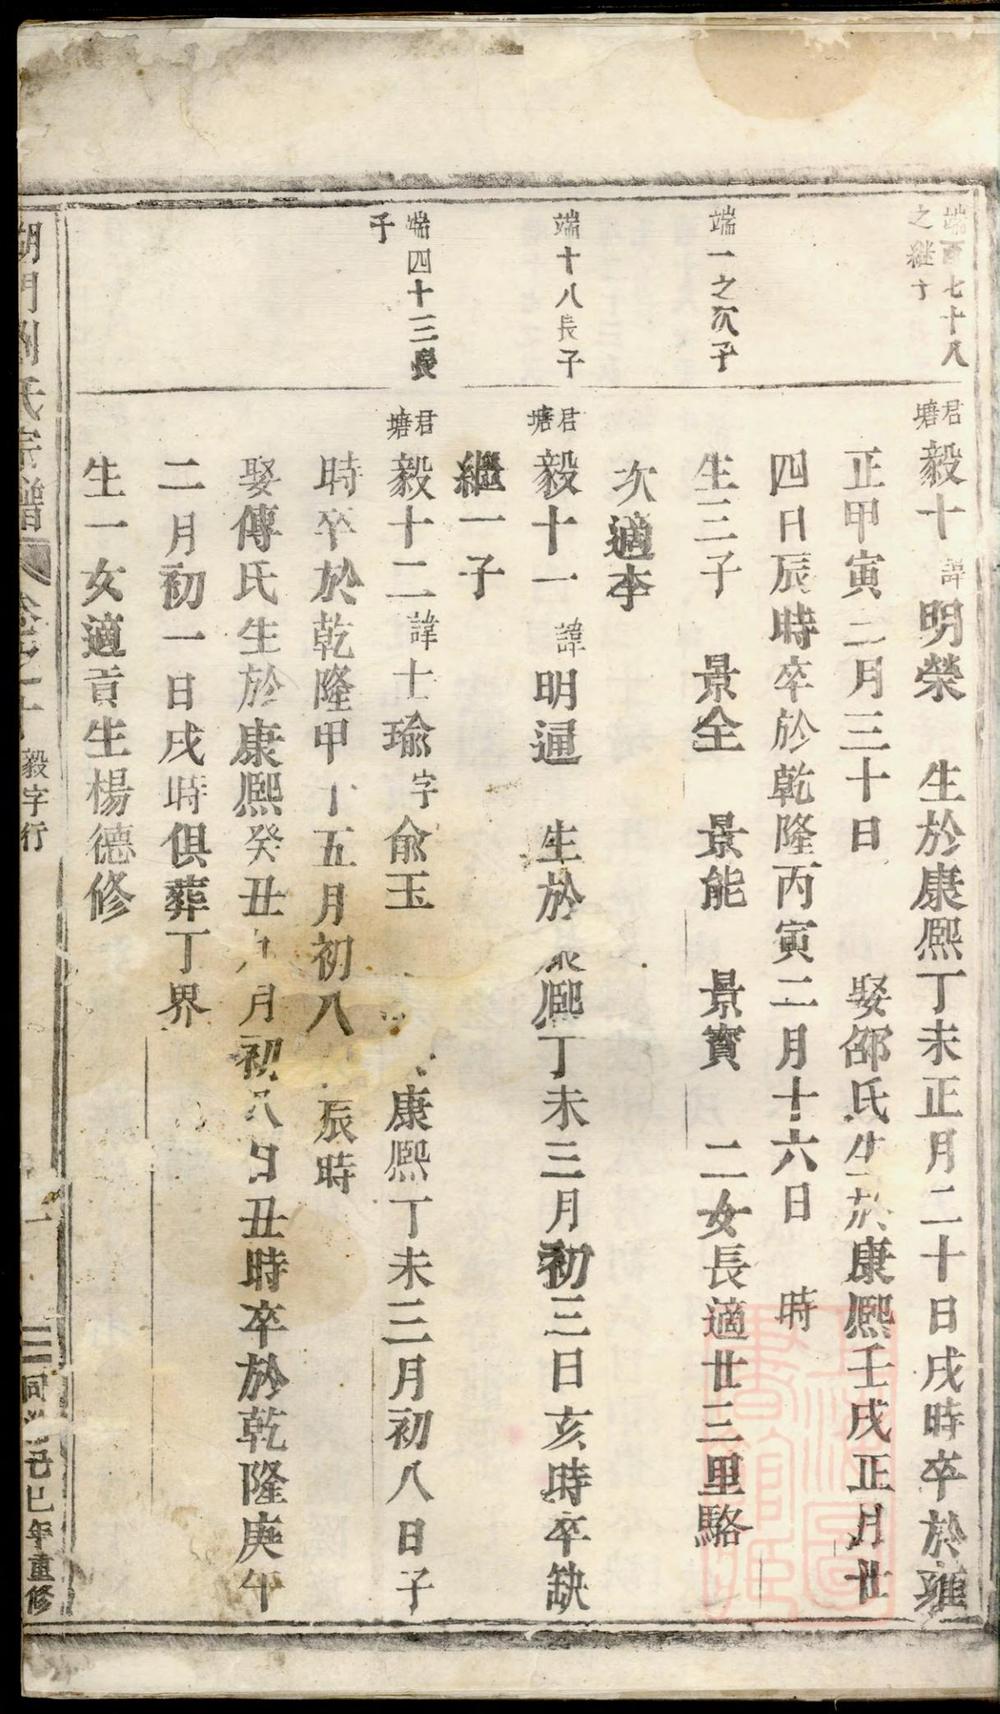 端百七十八
之繼子
君塘毅十諱明榮　生於康熙丁未正月二十日戌時卒於雍
正甲寅二月三十日　娶邵氏生於康熙壬戌正月廿
四日辰時卒於乾隆丙寅二月十六日　時
端一之次子
生三子　景全　景能　景寶　二女長適廿三里駱
次適李
端十八長子
君塘毅十一諱明通　生於康熙丁未三月初三日亥時卒缺
繼一子
端四十三長
子
君塘毅十二諱士瑜字俞玉　康熙丁未三月初八日子
時卒於乾隆甲十五月初八　辰時
娶傅氏生於康熙癸丑　月初八日丑時卒於乾隆庚午
二月初一日戌時俱葬丁界
生一女適貢生楊德修
湖門劉氏宗譜　卷之十　毅字行　同治己巳年重修